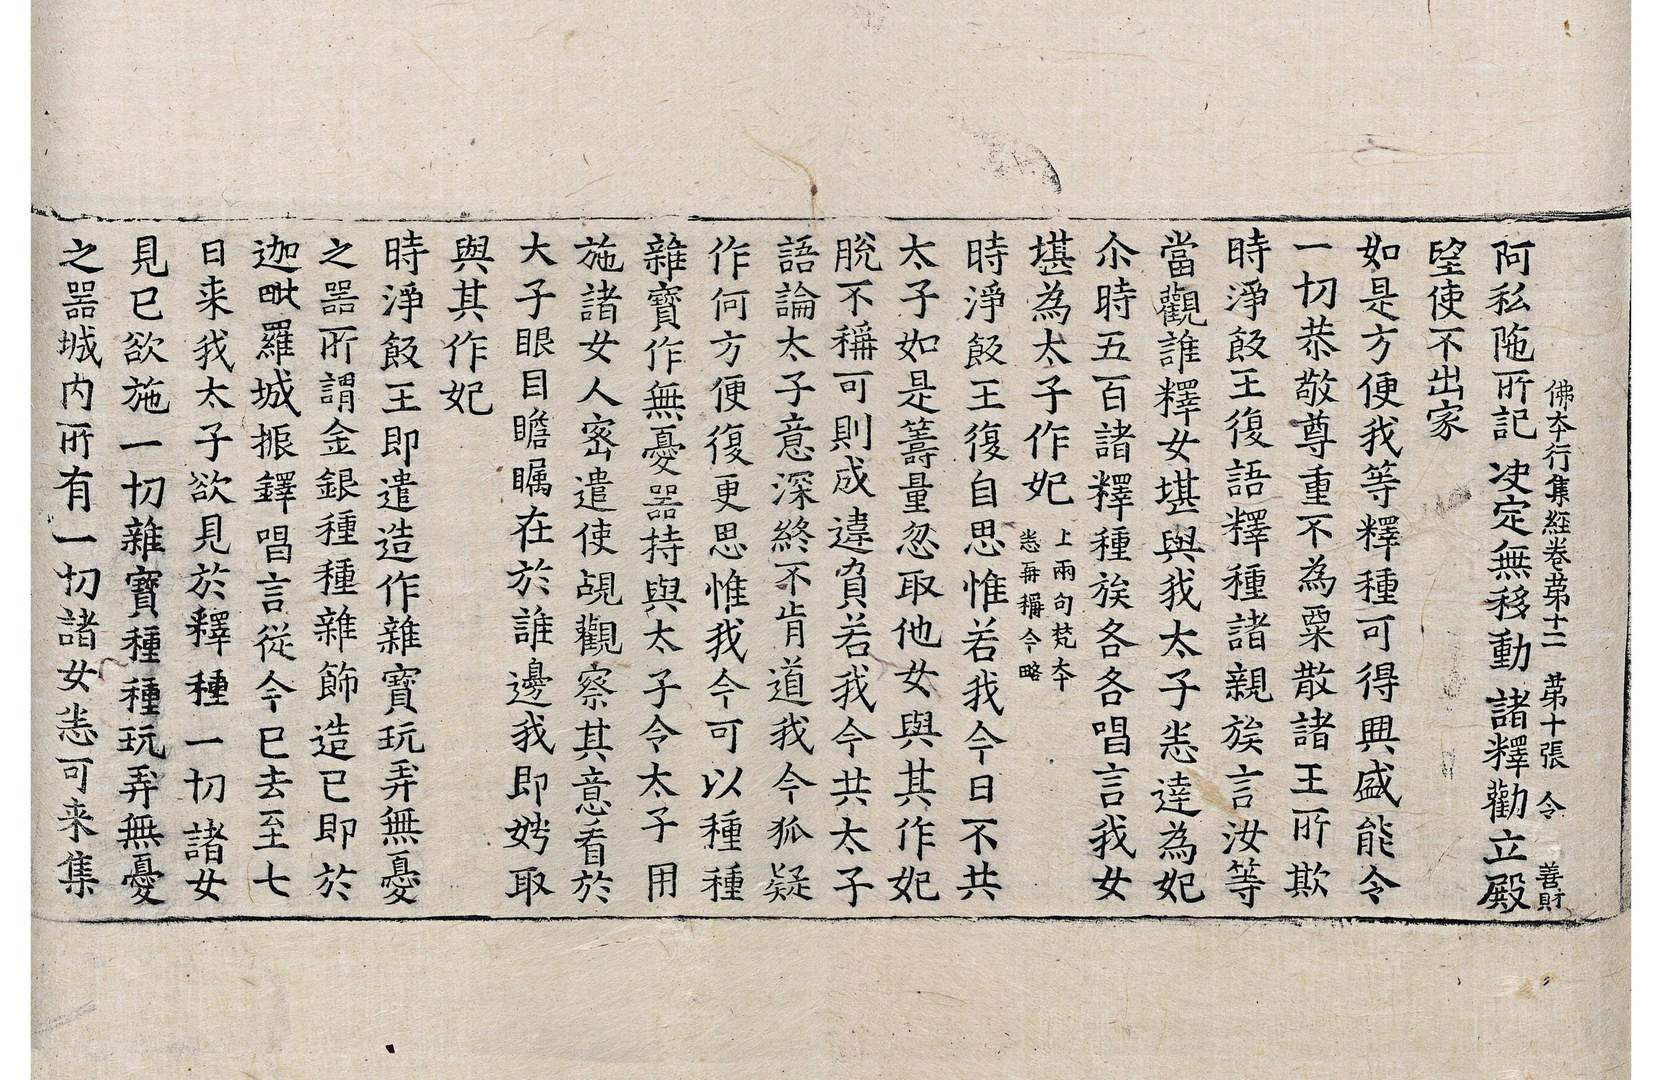 佛夲行集經卷苐十二 苐十張 令 善財
阿私陁所記 决定無移動 諸釋勸立殿
望使不出家
如是方便我等釋種可得興盛能令
一切恭敬尊重不為粟散諸王所欺
時淨飯王復語釋種諸親族言汝等
當觀誰釋女堪與我太子悉達為妃
尒時五百諸釋種族各各唱言我女
堪為太子作妃 上兩句梵夲
悉再稱今略
時淨飯王復自思惟若我今日不共
太子如是籌量忽取他女與其作妃
脫不稱可則成違負若我今共太子
語論太子意深終不肯道我今狐疑
作何方便復更思惟我今可以種種
雜寶作無憂器持與太子令太子用
施諸女人密遣使覘觀察其意看於
大子眼目瞻矚在於誰邊我即娉取
與其作妃
時淨飯王即遣造作雜寶玩弄無憂
之器所謂金銀種種雜飾造已即於
迦毗羅城振鐸唱言從今已去至七
日来我太子欲見於釋種一切諸女
見已欲施一切雜寶種種玩弄無憂
之器城内所有一切諸女悉可来集